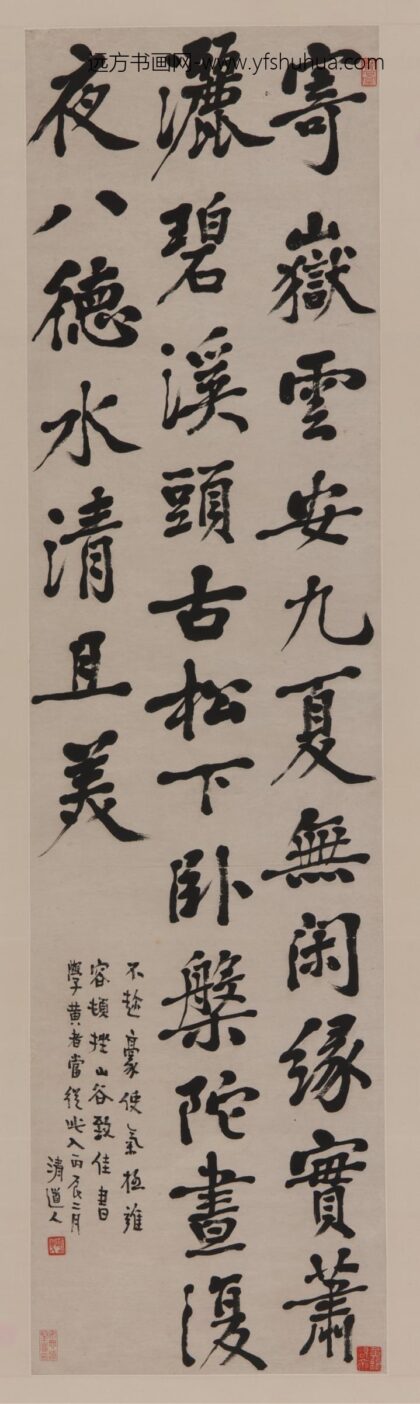 远方书画网-www.yfshuhua.com
寄嶽雲安九夏無闲缘實蕭
灑碧溪頭古松下卧槃陀晝復
夜八德水清且美
不趁豪使氣極雍
容頓挫山谷致佳書
學黄者當從此入丙辰二月
清道人